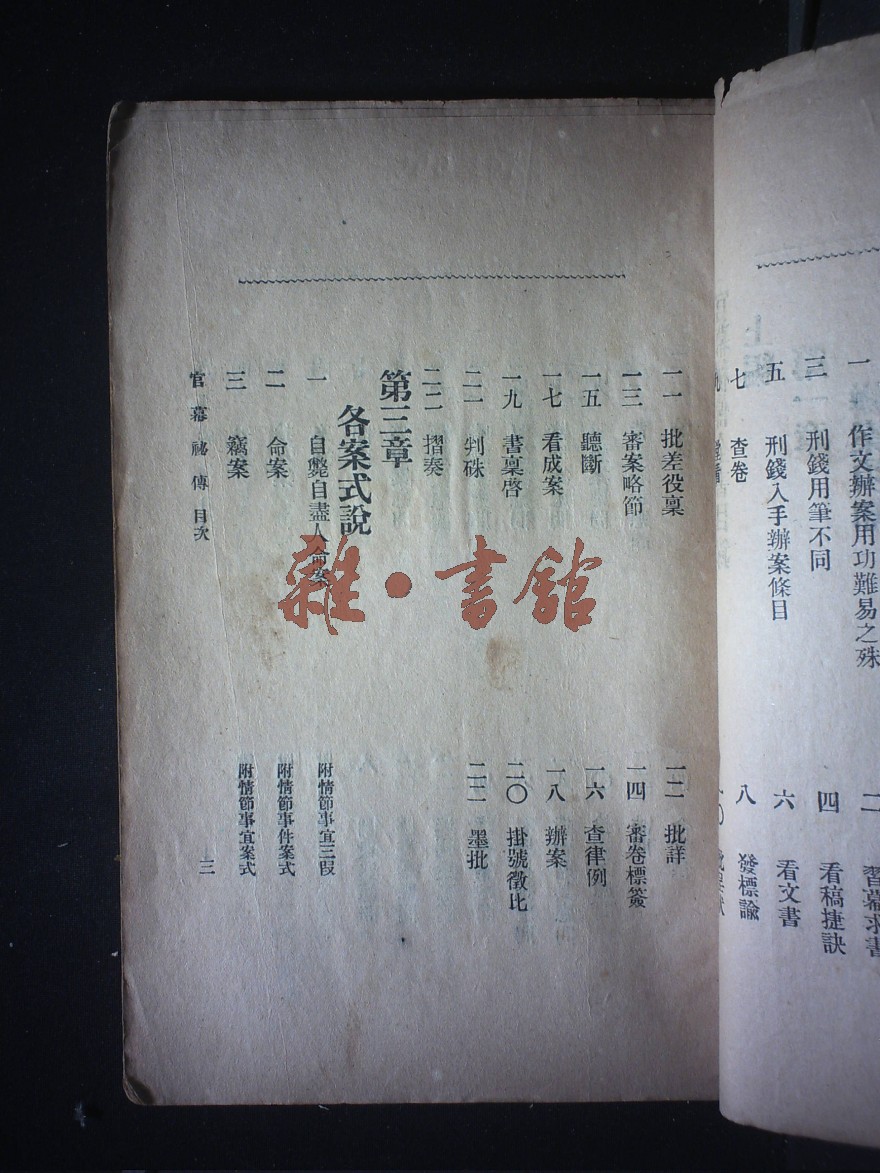 一 作文辦案用功難易之殊 二 習幕求書
三 刑錢用筆不同 四 看稿捷訣
五 刑錢入手辦案條目 六 看文書
七 查卷 八 發標諭
一一 批差役稟 一二 批詳
一三 審案略節 一四 審卷標簽
一五 聽斷 一六 查律例
一七 看成案 一八 辦案
一九 書稟啓 二〇 掛號徵比
二一 判硃 二二 墨批
二三 摺奏
第三章
各案式說
一 自斃自盡人命案 附情節事宜三叚
二 命案 附情節事件案式
三 竊案 附情節事宜案式
官幕祕傳 目次 三
雜·書館